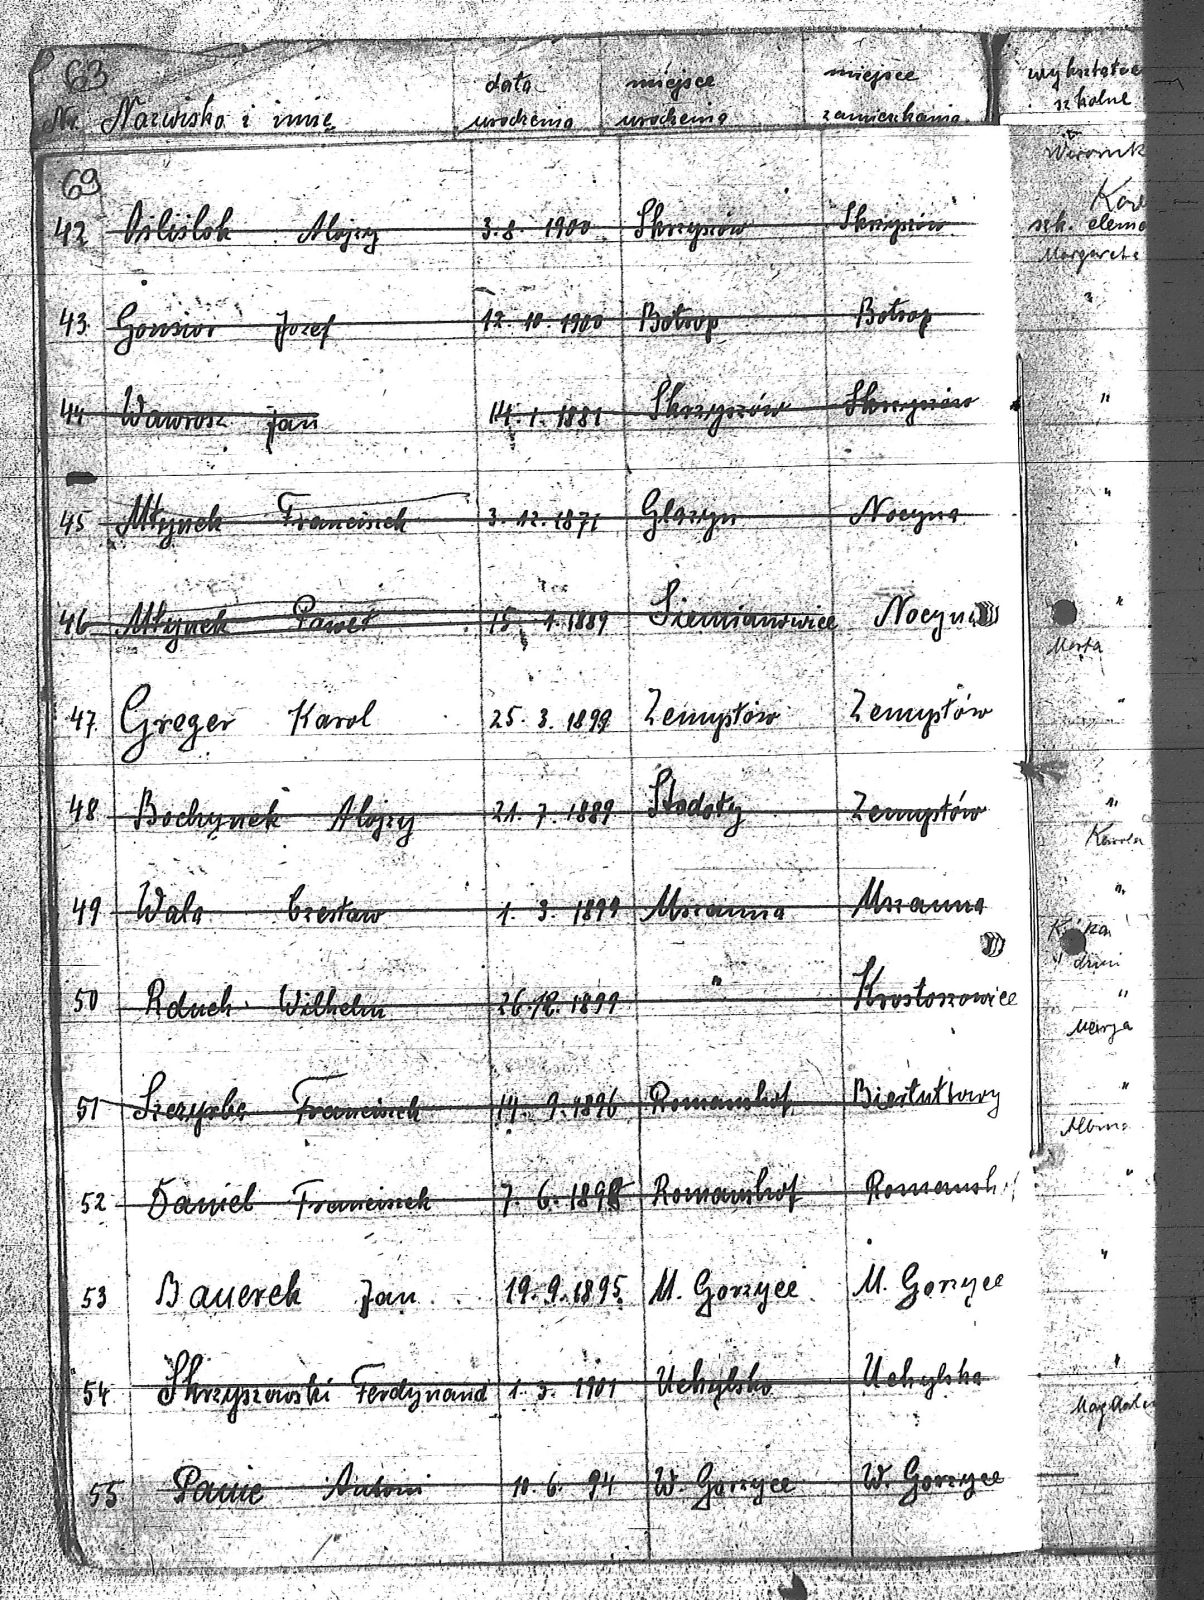 63
data miejsce miejsce wykształce
Nr. Nazwisko i imię urodzenia urodzenia zamieszkania szkolne
69
42 Alojzy 3.8. 1900 Skrzyszów Skrzyszów szk. eleme
Margareta
43. Gonsior Jozef 12. 10. 1900 Botrop Botrop "
44 Wawrosz Jan 14. 1. 1881 Skrzyszów Skrzyszów "
45 Młynek Franciszek 3. 12. 1871 Glazyn Nocyna "
46 Młynek Paweł 15. 1. 1889 Siemianowice Nocyna "
Marta
47. Greger Karol 25. 3. 1899 Zemysłów Zemysłów "
48 Bochynek Alojzy 21. 7. 1889 Stodoły Zemysłów "
49 Wala Czesław 1. 3. 1899 Mszanna Mszanna "
50 Rduch Wilhelm 26. 12. 1899 " Krostoszowice "
Marja
51 Szczyrba Franciszek 14. 9. 1896 Romanshof Biertułtowy "
52 Daniel Franciszek 7. 6. 1898 Romanshof Romansh "
53 Bauerek Jan 19. 9. 1895 M. Gorzyce M. Gorzyce "
54 Skrzyszowski Ferdynand 1. 3. 1901 Uchylsko Uchylsko "
55 Panic Antoni 10. 6. 94 W. Gorzyce W. Gorzyce